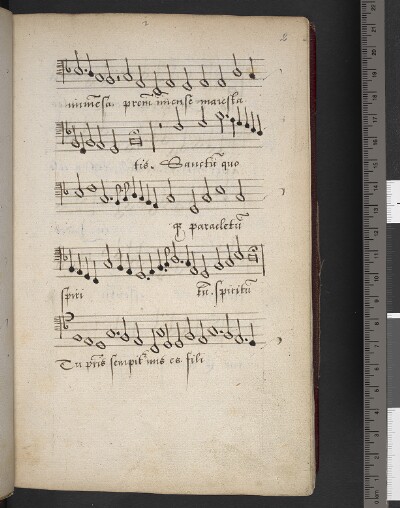 2
immēsa. prem̄ imense maiesta
tis. Sanctū quo
q̨ paracletū
spiri tū. spiritū
Tu pr̄is sempit'nus es fili